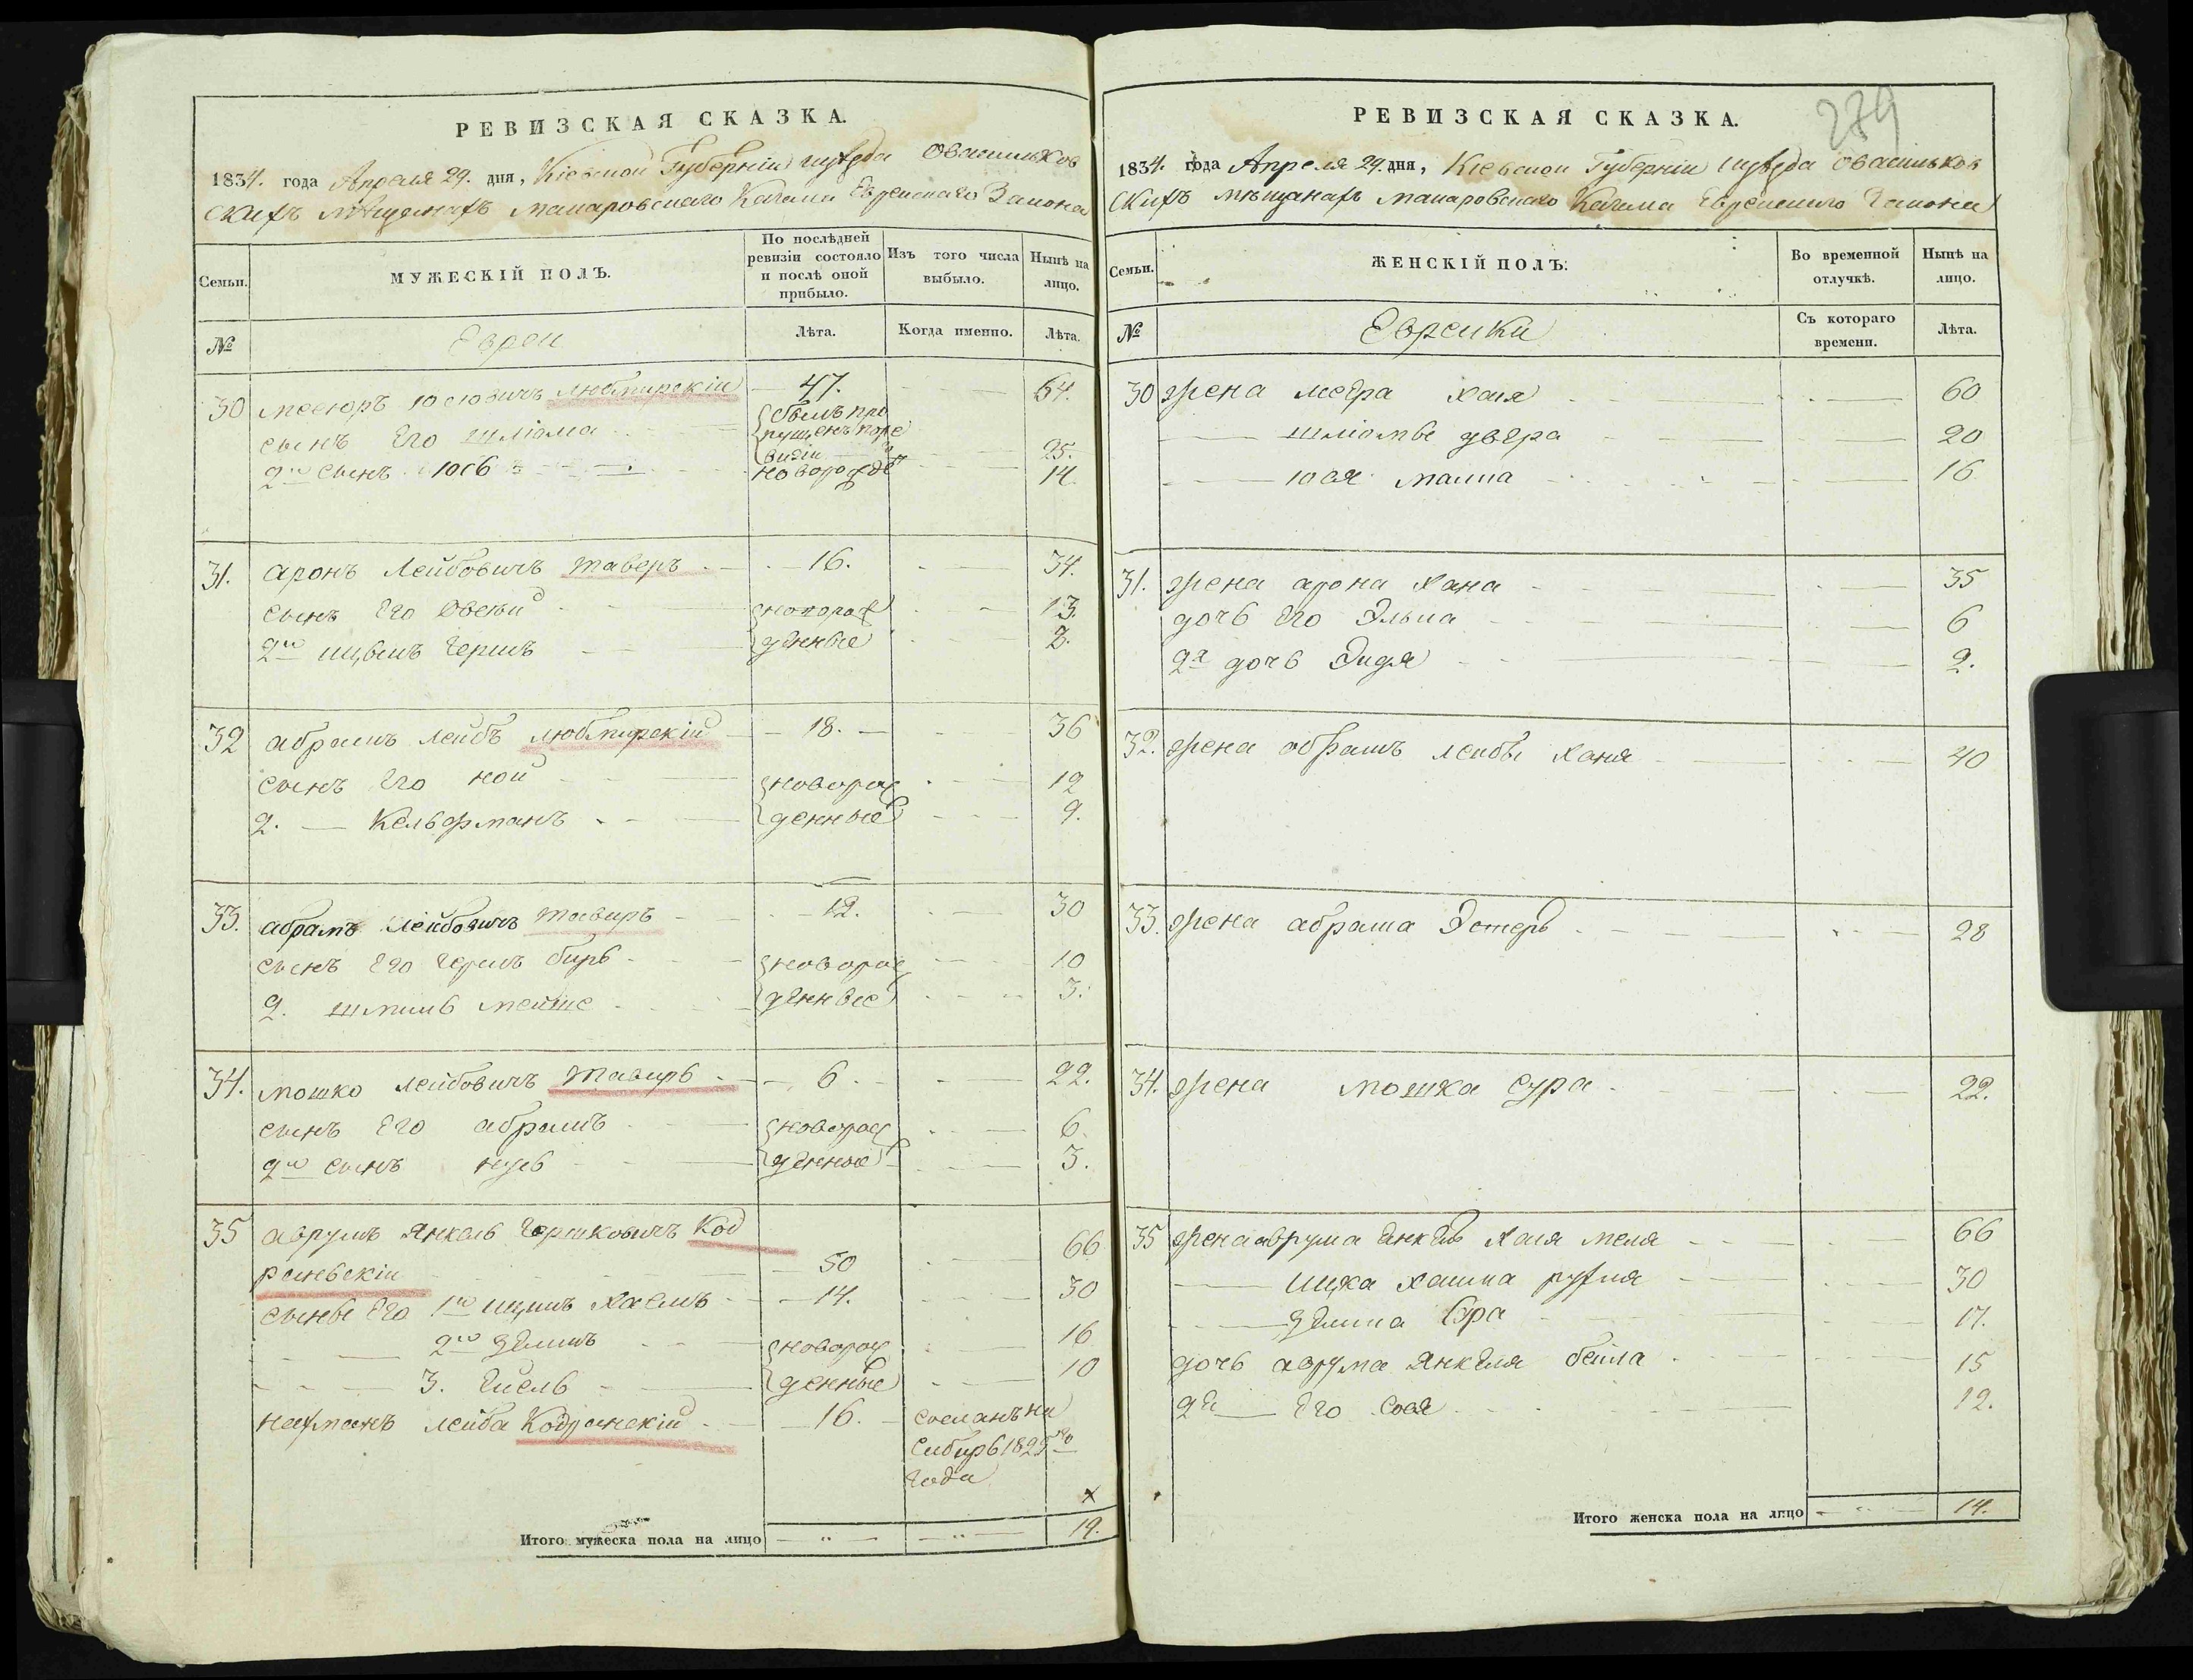 РЕВИЗСКАЯ СКАЗКА.
1834. года Апреля 29. дня, Кіевской Губерніи уѣзда Овасильков
скихъ мѣщанахъ макаровскаго Кагала Еврейскаго Закона
Семьи.
МУЖЕСКІЙ ПОЛЪ.
По послѣдней ревизіи состояло и послѣ оной прибыло.
Изъ того числа выбыло.
Нынѣ на лицо.
№
Евреи
Лѣта.
Когда именно.
Лѣта.
30 Юсіовичъ 47. 64.
сынъ Его Шліома былъ про
пущенъ по ре
визіи 25.
2й сынъ Юсь новорожде 14.
31. аронъ Лейбовичъ таверъ 16. 34.
сынъ Его Овсей новорож 13.
2й Гершъ денные 2.
32 абрамъ Лейбъ 18. 36
сынъ Его ной новорож 12
2. Кельфманъ денные 9.
33. абрамъ Лейбовичъ тавиръ 12. 30
сынъ Его беръ новорож 10
2. денные 3.
34. мошко лейбовичъ тавиръ 6 22.
сынъ Его абрамъ новорож 6.
2й сынъ денные 3.
35 аврумъ Янкель Гершковичъ Код
ранскій 50 66
сыны Его 1й Хаимъ 14. 30
2й новорож 16
3. денные 10
нахманъ лейба Кодранскій 16. сосланъ на
Сибирь 1825го
года
Итого мужеска пола на лицо 19.
РЕВИЗСКАЯ СКАЗКА.
279
1834. года Апреля 29. дня, Кіевской Губерніи уѣзда Овасильков
скихъ мѣщанахъ макаровскаго Кагала Еврейскаго Закона
Семьи.
ЖЕНСКІЙ ПОЛЪ.
Во временной отлучкѣ.
Нынѣ на лицо.
№
Еврейки
Съ котораго времени.
Лѣта.
30 жена Хая 60
двера 20
малка 16
31. жена арона Хана 35
дочь Его Элька 6
2я дочь Эидя 2.
32. жена абрамъ лейбы Ханя 40
33. жена абрама Эстеръ 28
34. жена мошка Сура 22.
35 жена аврума Хая 66
30
Сура 17.
дочь аврума Янкеля бейла 15
2я Его Сося 12.
Итого женска пола на лицо 14.